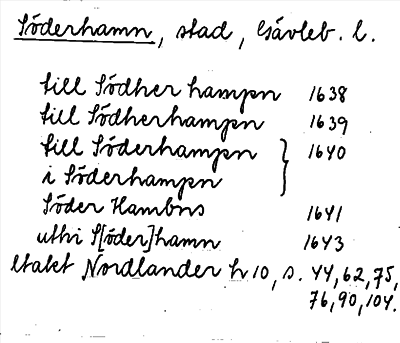 Söderhamn, stad, Gävleb. l.
till Södher hampn 1638
till Södherhampn 1639
till Söderhampn } 1640
i Söderhampn
Söder Hambns 1641
uthi S[öder]hamn 1643
Utakt Nordlander h. 10, s. 44, 62, 75,
76, 90, 104.